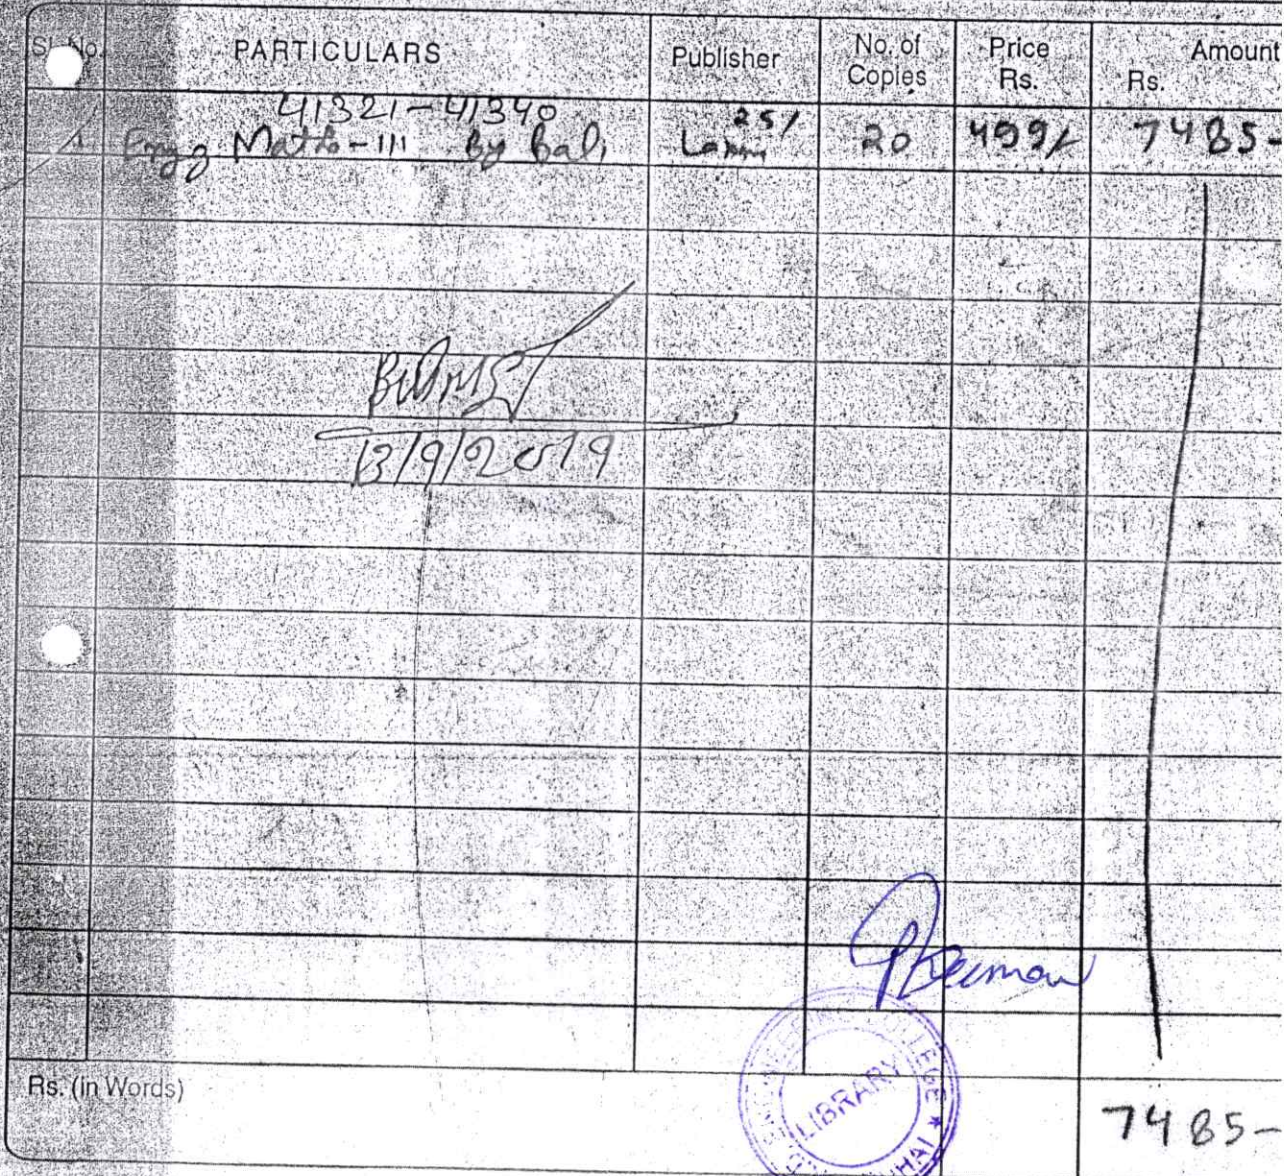 Sl. No. PARTICULARS Publisher No. of Copies Price Rs. Amount Rs.
41321-41340 25/
1 Engg Maths-III By Bali Laxmi 20 499/- 7485-
13/9/2019
Rs. (in Words)
LIBRARY
COLLEGE ★
7485-